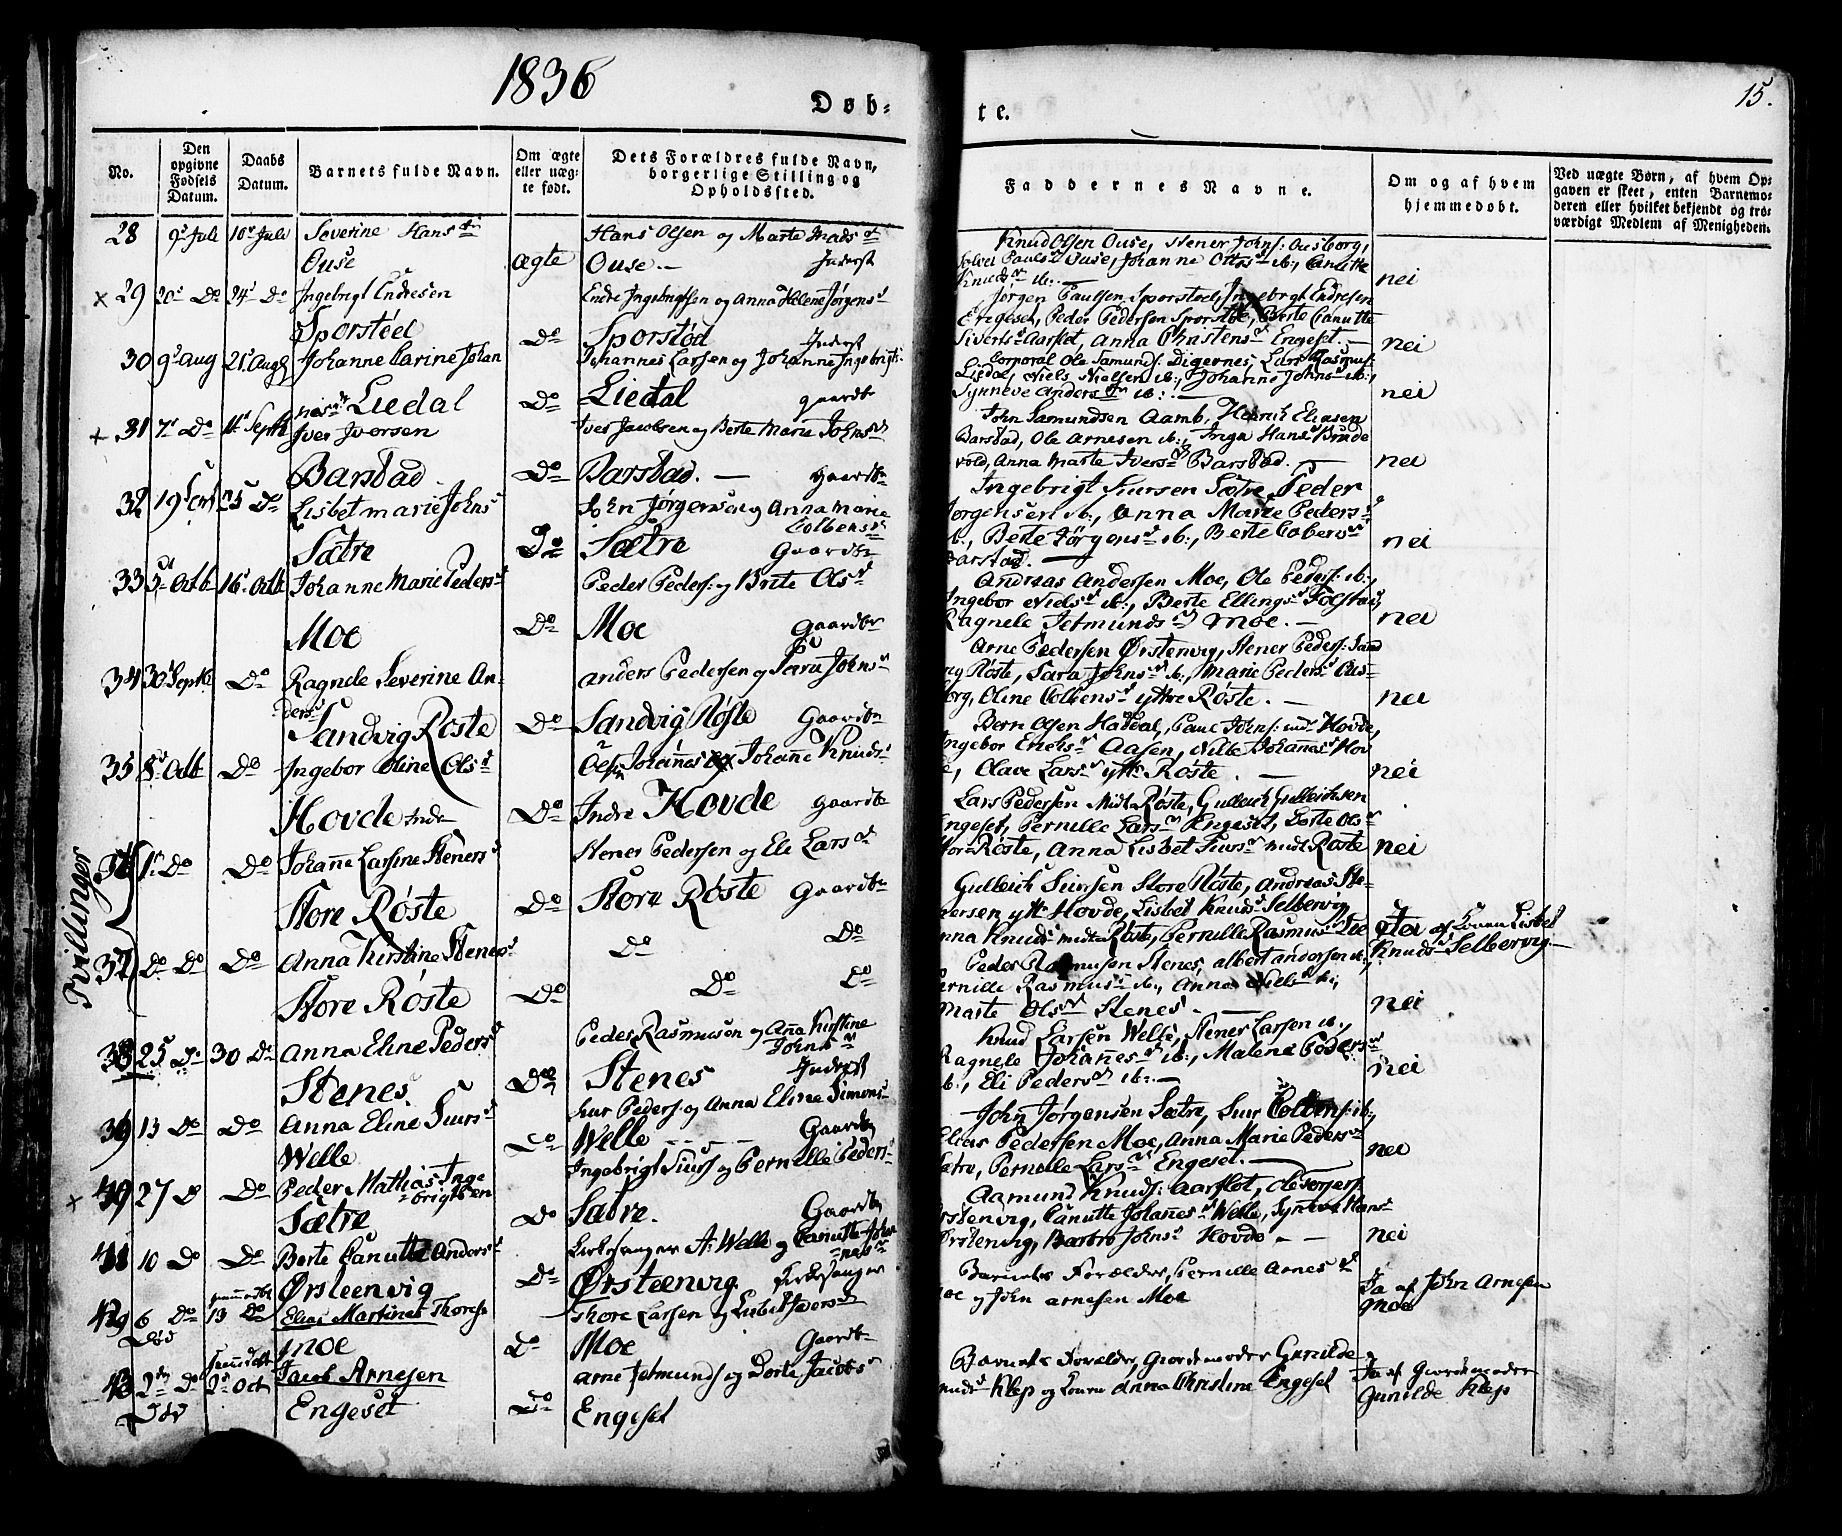 1836
Døb-
te.
15.
No.
Den opgivne Fødsels Datum.
Daabs Datum.
Barnets fulde Navn.
Om ægte eller uægte født.
Dets Forældres fulde Navn, borgerlige Stilling og Opholdssted.
Faddernes Navne.
Om og af hvem hjemmedøbt.
Ved uægte Børn, af hvem Opgaven er skeet, enten Barnemoderen eller hvilket bekjendt og troværdigt Medlem af Menigheden.
28 9d Juli 10d Juli Severine Hansdr Hans Olsen og Marte Madsdr
Ouse ægte Ouse Inderst
Knud Olsen Ouse, Stener Johns: Ousborg,
Paulsd Ouse, Johanne Ottosdr ib:, Canutte
Knudsdr ib: nei
x 29 20d Do 24d Do Ingebrigt Endresen Endre Ingebrigtsen og Anna Helene Jørgensd
Sporstøel Do Sporstød Inderst
Jørgen Paulsen Sporstøel, Ingebrgt Endresen
Engeset, Peder Pedersen Sporstøe, Berte Canutte
Sivertsd Aarset, Anna Christensdr Engeset. nei
30 9d Aug 21d Aug Johanne Carine Johan Johannes Larsen og Johanne Ingebrigts:
nesdr Liedal Do Liedal gaardbr
Corporal Ole Samunds: Digernes, Lars Rasmus:
Liedal, Niels Nielsen ib:, Johanne Johnsd ib:,
Synneve Andersdr ib: nei
+ 31 7d Do 11d Septb Iver Iversen Iver Jacobsen og Berte Marie Johnsdr
Barstad Do Barstad. Gaardbr
John Samundsen Aamb, Henrik Eliasen
Barstad, Ole Arnesen ib:, Inga Hansd Brude
vold, Anna Marte Iversdr Barstad. nei
32 19 25 Do Lisbet Marie Johnsd John Jørgensen og Anna Marie
Colbensdr
Sætre Do Sætre Gaardbr
Ingebrigt Siursen Sætre, Peder
Jørgensen ib:, Anna Marie Pedersd
ib:, Berte Jørgensd ib:, Berte
Barstad. nei
33 5d Octb 16d Octb Johanne Marie Pedersd Peder Peders: og Brite Olsd
Moe Do Moe Gaardbr
Andreas Andersen Moe, Ole Peders: ib:,
Ingebor Nielsd ib:, Berte Ellingsd Folstad,
Ragnele Jetmundsdr Moe. nei
34 30 Septb Do Ragnele Severine An- Anders Pedersen og Sara Johnsdr
dersd
Sandvig Røste Do Sandvig Røste Gaardbr
Arne Pedersen Ørstenvig, Stener Peders: Sand
vig Røste, Sara Johnsdr ib:, Marie Pedersd Ous-
borg, Oline Colbensd yttre Røste. nei
35 8d Octb Do Ingebor Oline Olsd Ole Johannes: og Johanne Knudsd
Hovde Indre Do Indre Hovde Gaardbr
Bern Olsen Hatdal, Paul Johns: indr Hovde,
Ingebor Ericksdr Aasen, Nille Johannesd Hov
de, Olave Larsdr yttr Røste. nei
Tvillinger
36 1d Do Do Johanne Larsine Stenersd Stener Pedersen og Eli Larsdr
Store Røste Do Store Røste Gaardbr
Lars Pedersen Midt Røste, Gulleich Gulleichsen
Engeset, Pernille Larsdr Engeset, Dorte Olsdr
Stor Røste, Anna Lisbet Siursdr midt Røste nei
37 Do Do Do Anna Kirstine Stenersd Do Do
Store Røste Do Do Do
Gulleich Siursen Store Røste, Andreas Ste-
nersen ytt Hovde, Lisbet Knudsd Selbervig
Anna Knudsd midt Røste, Pernille Rasmusdr
Ja af Konen Lisbet
Knudsd Selbervig
38 25 Do 30 Do Anna Eline Pedersd Peder Rasmusen og Ana Kirstine
Johnsdr
Stenes Do Stenes Inderst
Peder Rasmusen Stenes, albert andersen ib:,
Pernille Rasmusd ib:, Anne Nielsd ib:,
Marte Olsdr Stenes. nei
39 13 Do Do Anna Eline Siursd Siur Peders: og Anna Eline Simonsd
Welle Do Welle Gaardbr
Knud Larsen Welle, Stener Larsen ib:,
Ragnele Johannesdr ib:, Malene Pedersdr
ib:, Eli Pedersdr ib: nei
x 40 27 Do Do Peder Mathias Inge Ingebrigt Siurs: og Pernille Pedersd
brigtsen
Sætre Do Sætre. Gaardbr
John Jørgensen Sætre, Siur Colbens: ib:,
Elias Pedersen Moe, Anna Marie Pedersdr
Sætre, Pernille Larsdr Engeset. nei
41 10 Do Do Berte Canutte Andersd Kirkesanger A: Welle og Canutte Johan
nesdr
Ørsteenvig Do Ørsteenvig Kirkesanger
Aamund Knuds: Aarflot, Ole
Ørstenvig, Canutte Johannesd Welle, Synneve Hansd
Ørstenvig, Barbro Johnsd Hovde nei
42 6 Do 13 Do Elias Martinus Thores: Thore Larsen og Lisbet Iversdr
Død Moe Do Moe Gaardbr
Barnets Forælder, Pernille Arnesd
Moe og John Arnesen Moe
Ja af John Arnesen
Moe
43 2den Do 2d Oct Jacob Arnesen Arne Jetmunds: og Dorte Jacobsd
Død Engeset Do Engeset
Barnets Forælder, Giordemoder Gunilde
Klep og Konen Anna Christine Engeset
Ja af Giordemoder
Gunilde Klep